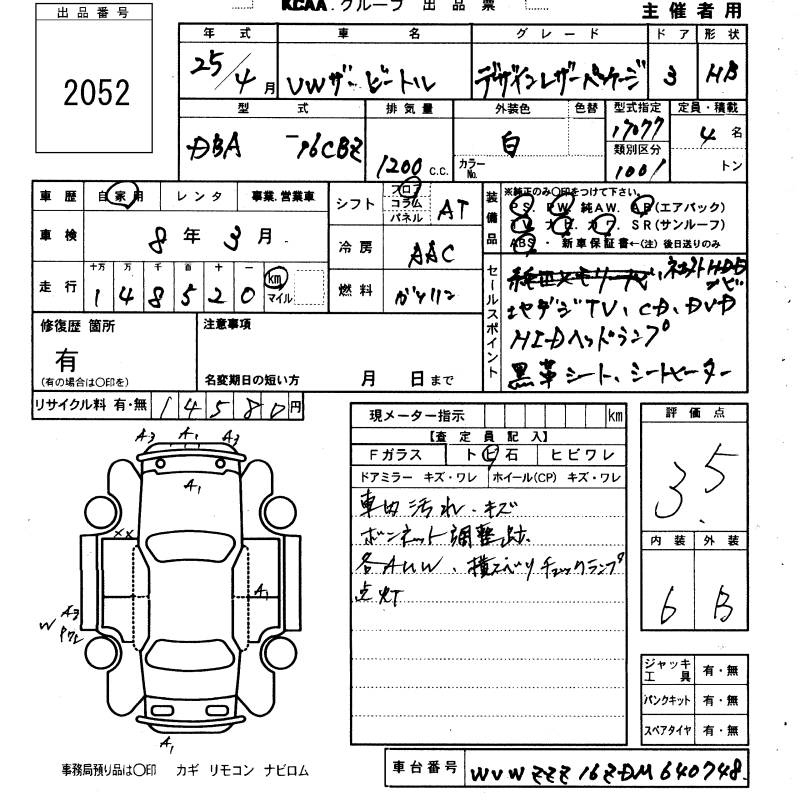 出品番号
2052
KCAA.グループ 出品票
主催者用
年式 車名 グレード ドア 形状
25/4月 VWザ・ビートル デザインレザーパッケージ 3 HB
型式 排気量 外装色 色替 型式指定 定員・積載
DBA -16CBZ 1200 c.c. 白 カラーNo. 17077 4名
類別区分
1001 トン
車歴 自家用 レンタ 事業.営業車
車検 8年 3月
十万 万 千 百 十 一
走行 1 4 8 5 2 0 km マイル
シフト フロア コラム パネル AT
冷房 AAC
燃料 ガソリン
装備品 ※純正のみ〇印をつけて下さい。
PS. PW. 純AW. AB(エアバック)
TV. ナビ. カワ. SR(サンルーフ)
ABS・ 新車保証書←(注)後日送りのみ
セールスポイント
地デジTV、CD、DVD
HIDヘッドランプ
黒革シート、シートヒーター
修復歴 箇所
有
(有の場合は〇印を)
注意事項
名変期日の短い方 月 日まで
リサイクル料 有・無 14580円
現メーター指示 km
【査定員記入】
Fガラス ト 石 ヒビワレ
ドアミラー キズ・ワレ ホイール(CP) キズ・ワレ
車内汚れ・キズ
ボンネット調整跡
各AUW、横スベリチェックランプ
点灯
評価点
3.5
内装 外装
6 B
A3 A1 A3
A1
XX
A1
A3
W
A1
ジャッキ工具 有・無
パンクキット 有・無
スペアタイヤ 有・無
事務局預り品は〇印 カギ リモコン ナビロム
車台番号 WVWZZZ16ZDM640748